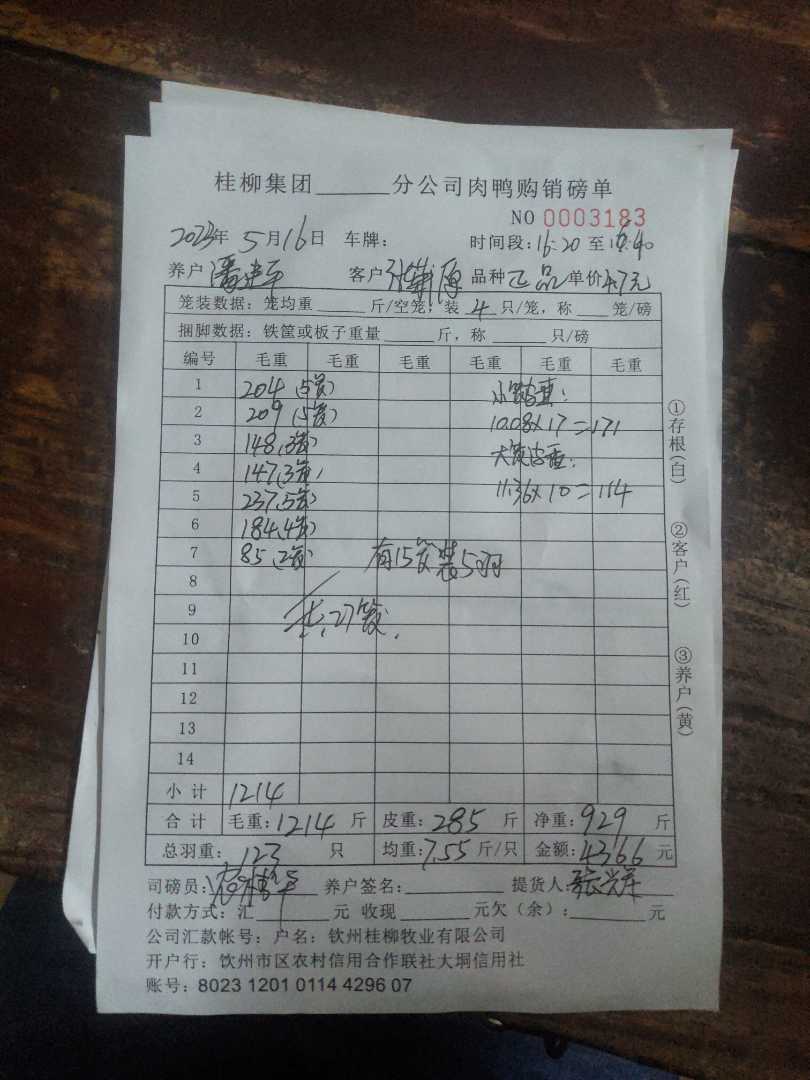 桂柳集团______分公司肉鸭购销磅单
NO 0003183
2023年 5月16日 车牌： 时间段：16:20 至 16:40
养户 潘建平 客户 张 源 品种 正品 单价4.7元
笼装数据：笼均重____斤/空笼，装 4 只/笼，称____笼/磅
捆脚数据：铁筐或板子重量____斤，称____只/磅
编号 毛重 毛重 毛重 毛重 毛重 毛重
1 204 (5笼) 小笼皮重：
2 209 (5笼) 10.08×17=171
3 148 (3笼) 大笼皮重：
4 147 (3笼)
5 237 (5笼) 11.36×10=114
6 184 (4笼)
7 85 (2笼) 有15笼装5羽
8
9 共27笼.
10
11
12
13
14
小计 1214
合计 毛重：1214 斤 皮重：285 斤 净重：929 斤
总羽重：123 只 均重：7.55 斤/只 金额：4366 元
司磅员： 养户签名：______ 提货人 张
付款方式：汇____元 收现____元欠（余）：____元
公司汇款帐号：户名：钦州桂柳牧业有限公司
开户行：饮州市区农村信用合作联社大垌信用社
账号：8023 1201 0114 4296 07
①存根(白)
②客户(红)
③养户(黄)